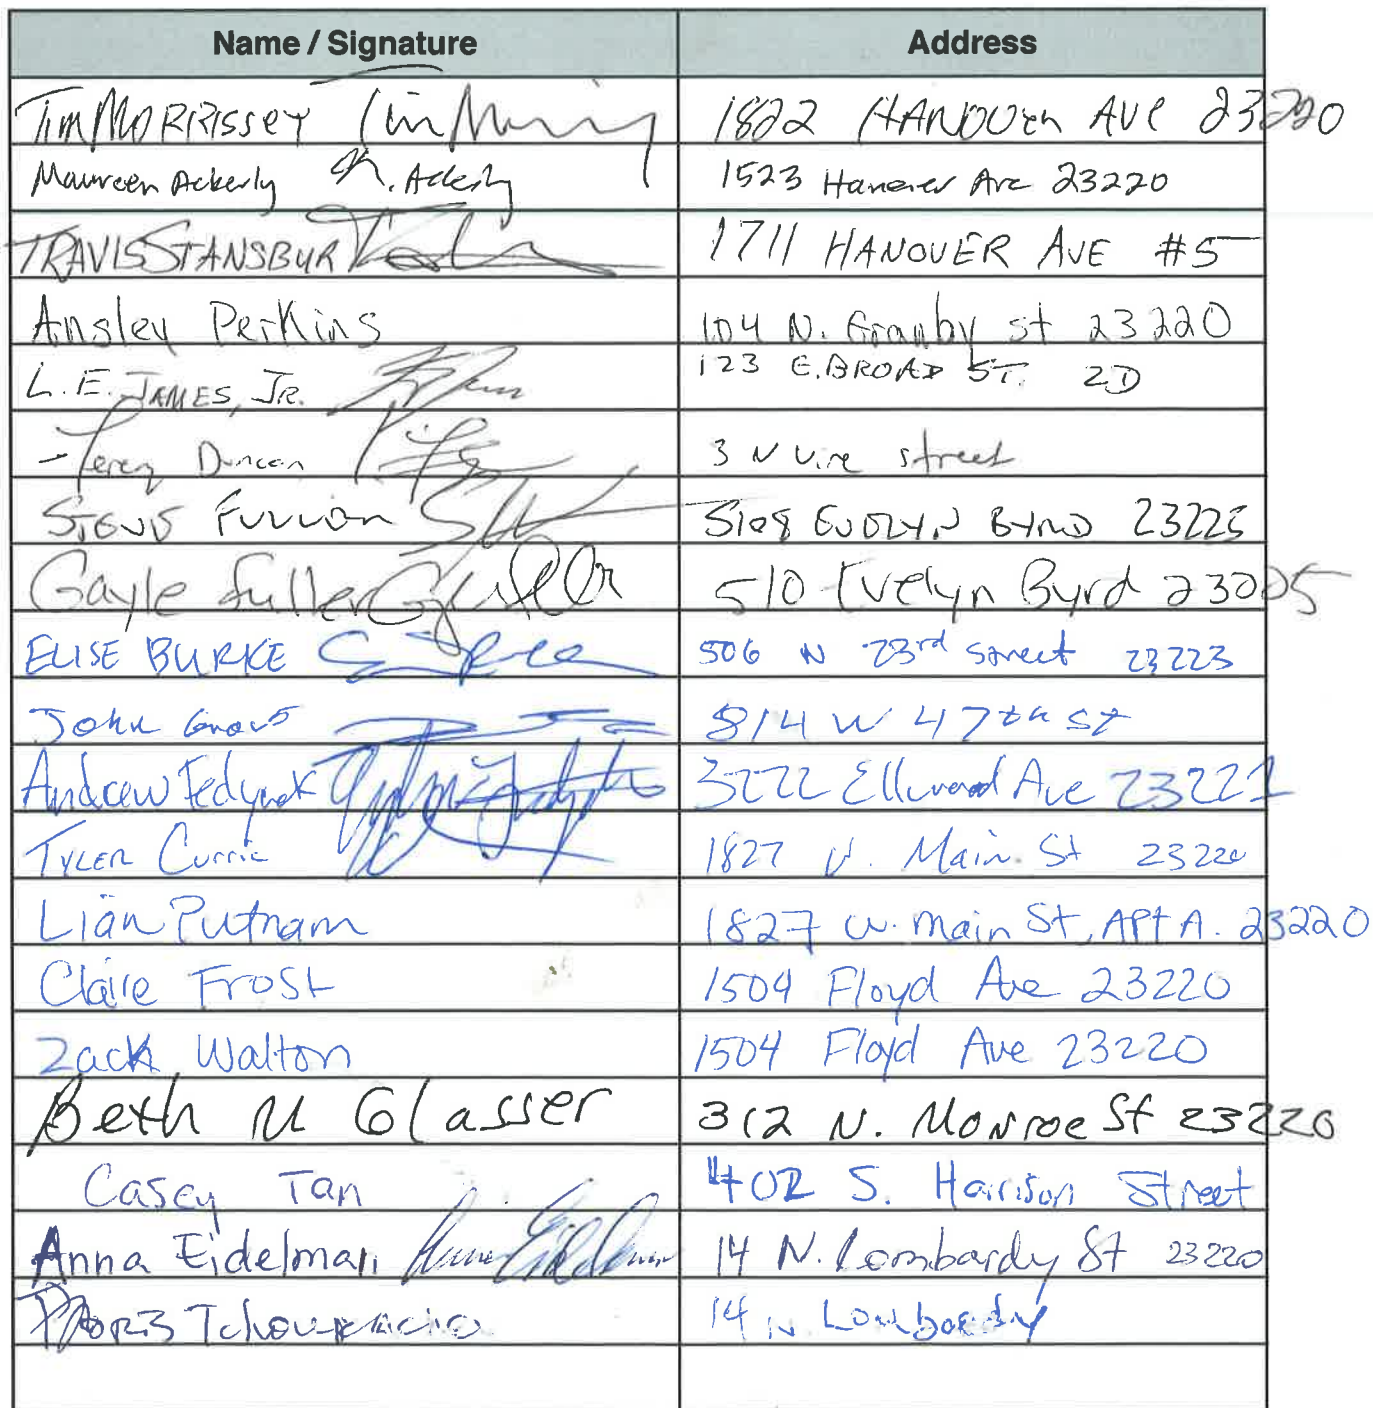 Name / Signature Address
TIM MORRISSEY Tim 1822 HANOVER AVE 23220
Maureen Ackerly M. Ackerly 1523 Hanover Ave 23220
TRAVIS STANSBUR 1711 HANOVER AVE #5
Ansley Perkins 104 N. Granby st 23220
L. E. JAMES, JR. 123 E. BROAD ST. 2D
Duncan 3 N Vine street
5108 EVELYN BYRD 23225
Gayle Fuller 510 Evelyn Byrd 23225
ELISE BURKE 506 N 23rd street 23223
John 814 W 47th St
Andrew Fedynak 3222 Ellwood Ave 23221
TYLER Currie 1827 W. Main St 23220
Lian Putnam 1827 W. Main St, APt A. 23220
Claire Frost 1504 Floyd Ave 23220
Zack Walton 1504 Floyd Ave 23220
Beth M Glasser 312 N. Monroe St 23220
Casey Tan 402 S. Harrison Street
Anna Eidelman 14 N. Lombardy St 23220
14 N Lombardy